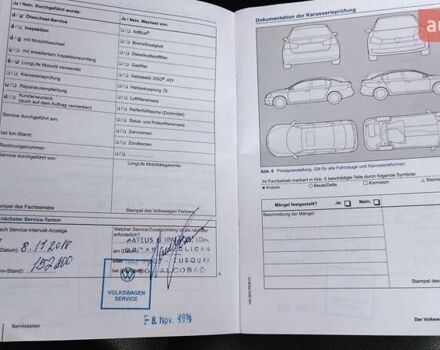 Ja / Nein. Durchgeführt wurde:
Ölwechsel-Service
Inspektion
mit Motorölwechsel
mit erweitertem Inspektionsumfang
LongLife Motoröl verwendet
Karosserieprüfung
Reparaturempfehlung
Kundenwunsch
(auch auf dem Auftrag vermerken)
Service durchgeführt am:
bei km-Stand:
Rechnungsnummer:
Service durchgeführt von:
Stempel des Fachbetriebs
Ja / Nein. Wechsel von:
AdBlue®
Bremsflüssigkeit
Dieselkraftstofffilter
Gasfilter
Getriebeöl DSG®, ATF
Haldexkupplung Öl
Luftfiltereinsatz
Reifenfülldichtmittel
Staub- und Pollenfiltereinsatz
Zahnriemen
Zündkerzen
LongLife Mobilitätsgarantie
Stempel des Volkswagen Partners
nächster Service-Termin
nach Service-Intervall-Anzeige
(Datum)
8.11.2018
(km-Stand):
152200
Welcher Service/Zusatzumfang ist als nächstes
erforderlich?
(am)
oder
bei
ALCOBAÇA
VOLKSWAGEN
SERVICE
8. Nov.
Serviceplan
Dokumentation der Karosserieprüfung
Abb. 6 Prinzipdarstellung. Gilt für alle Fahrzeuge und Karosserieformen.
Ihr Fachbetrieb markiert in Abb. 6 beschädigte Teile durch folgende Symbole:
Kratzer
Beule/Delle
Korrosion
Mängel festgestellt?
Ja:
Nein:
Beschreibung der Mängel:
Stempel des Fachbetriebs
Der Volksw